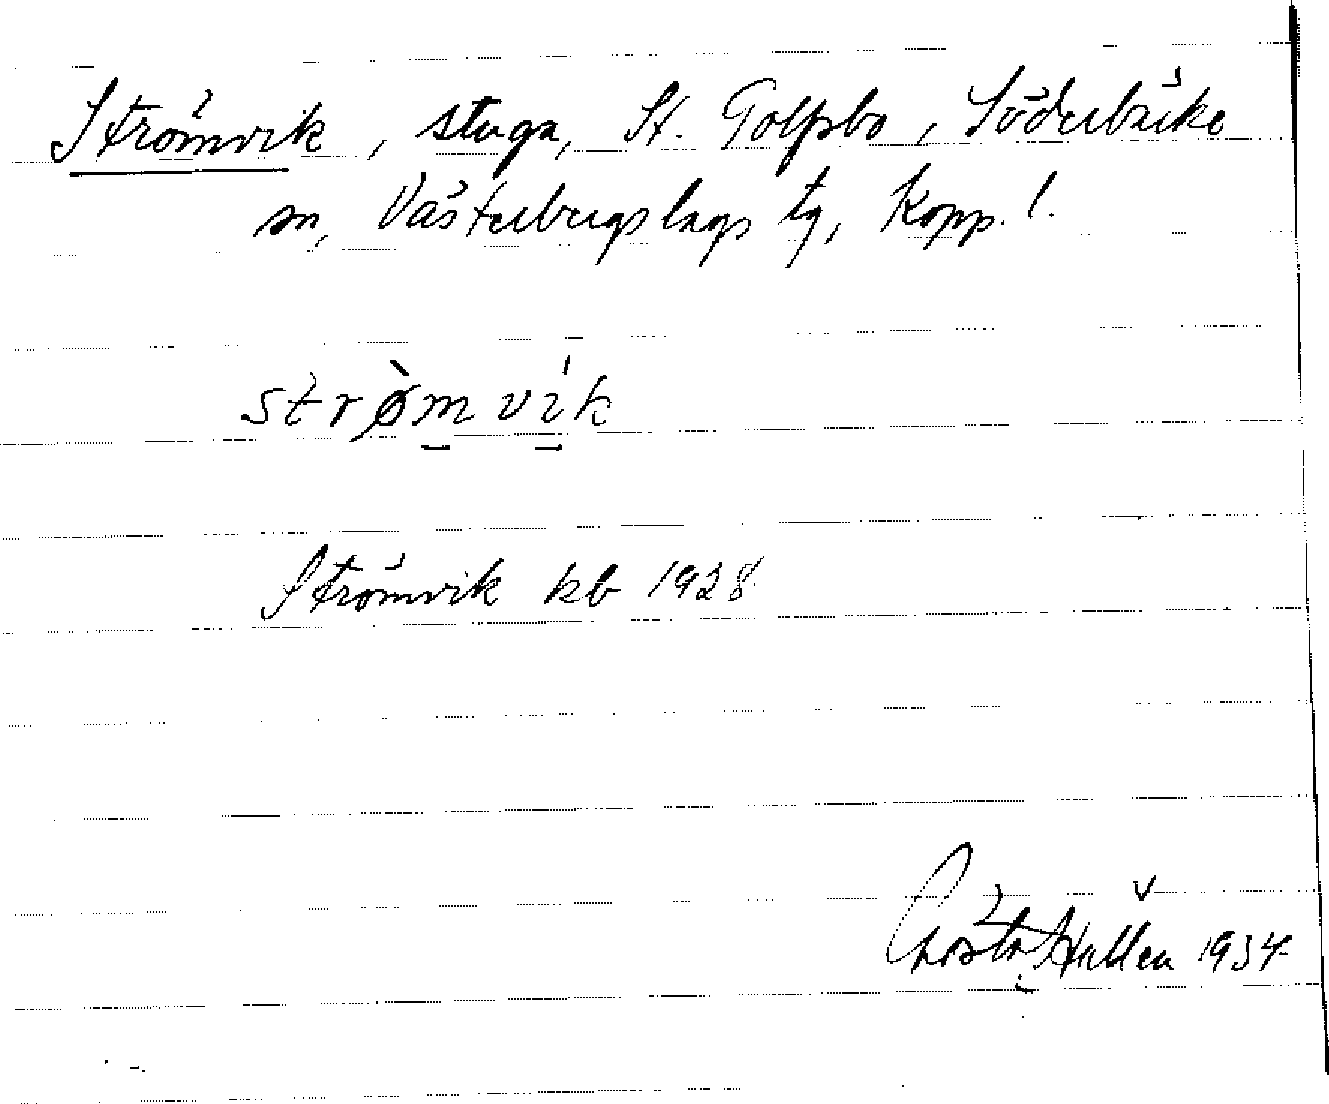 Strömvik, stuga, St. Tolfsbo, Söderbärke
sn, Västerbergslags tg, Kopp. l.
strø̀mvík
Strömvik kb 1928
Gösta Hallén 1934